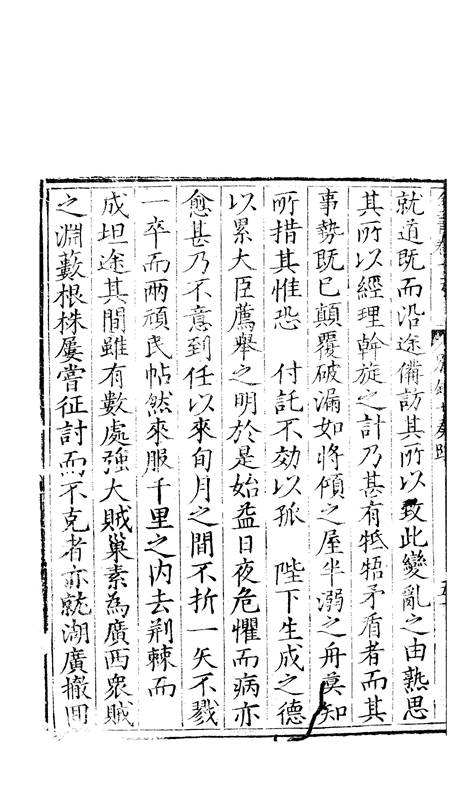 就道既而沿途備訪其所以致此變亂之由熟思
其所以經理斡旋之計乃甚有牴牾矛盾者而其
事勢既已顛覆破漏如將傾之屋半溺之舟莫知
所措其惟恐　付託不効以孤　陛下生成之德
以累大臣薦舉之明於是始益日夜危懼而病亦
愈甚乃不意到任以來旬月之間不折一矢不戮
一卒而兩頑民帖然來服千里之内去荆棘而
成坦途其間雖有數處強大賊巢素為廣西衆賊
之淵藪根株屢嘗征討而不克者亦就湖廣撤囬